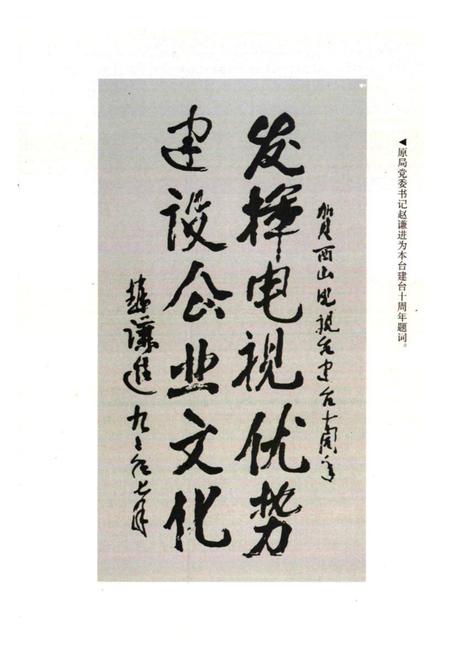 ◀原局党委书记赵谦进为本台建台十周年题词。
贺西山电视台建台十周年
发挥电视优势
建设企业文化
赵谦进 九〇年七月